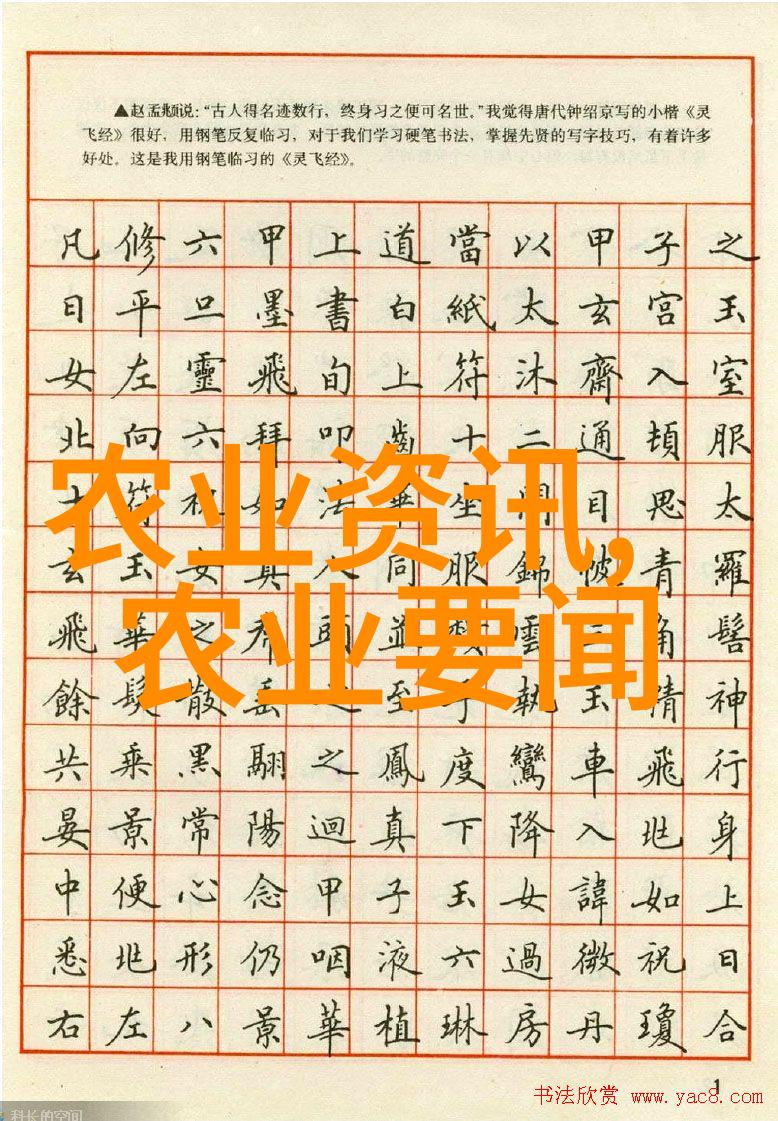 ▲赵孟頫说：“古人得名迹数行，终身习之便可名世。”我觉得唐代钟绍京写的小楷《灵
飞经》很好，用钢笔反复临习，对于我们学习硬笔书法，掌握先贤的写字技巧，有着许多
好处。这是我用钢笔临习的《灵飞经》。
凡修六甲上道當以甲子之
日平旦墨書白紙太玄宮玉
女左靈飛旬上符沐齋入室
北向六拜叩齒十二通頓服
十符祝如法畢坐閉目思太
玄玉女真人同服錦帔青羅
飛華之帬頭並頹雲三角髻
餘髮散垂之至手執玉精神
共乘黑翮之鳳度鸞車飛行
晏景常陽迴真下降入兆身
中便心念甲子玉女諱如上
悉兆形仍咽液六過微祝日
右左八景華植琳房丹瓊合
农业资讯,
农业要闻
1
书法欣赏 www.yac8.com
科长的空间